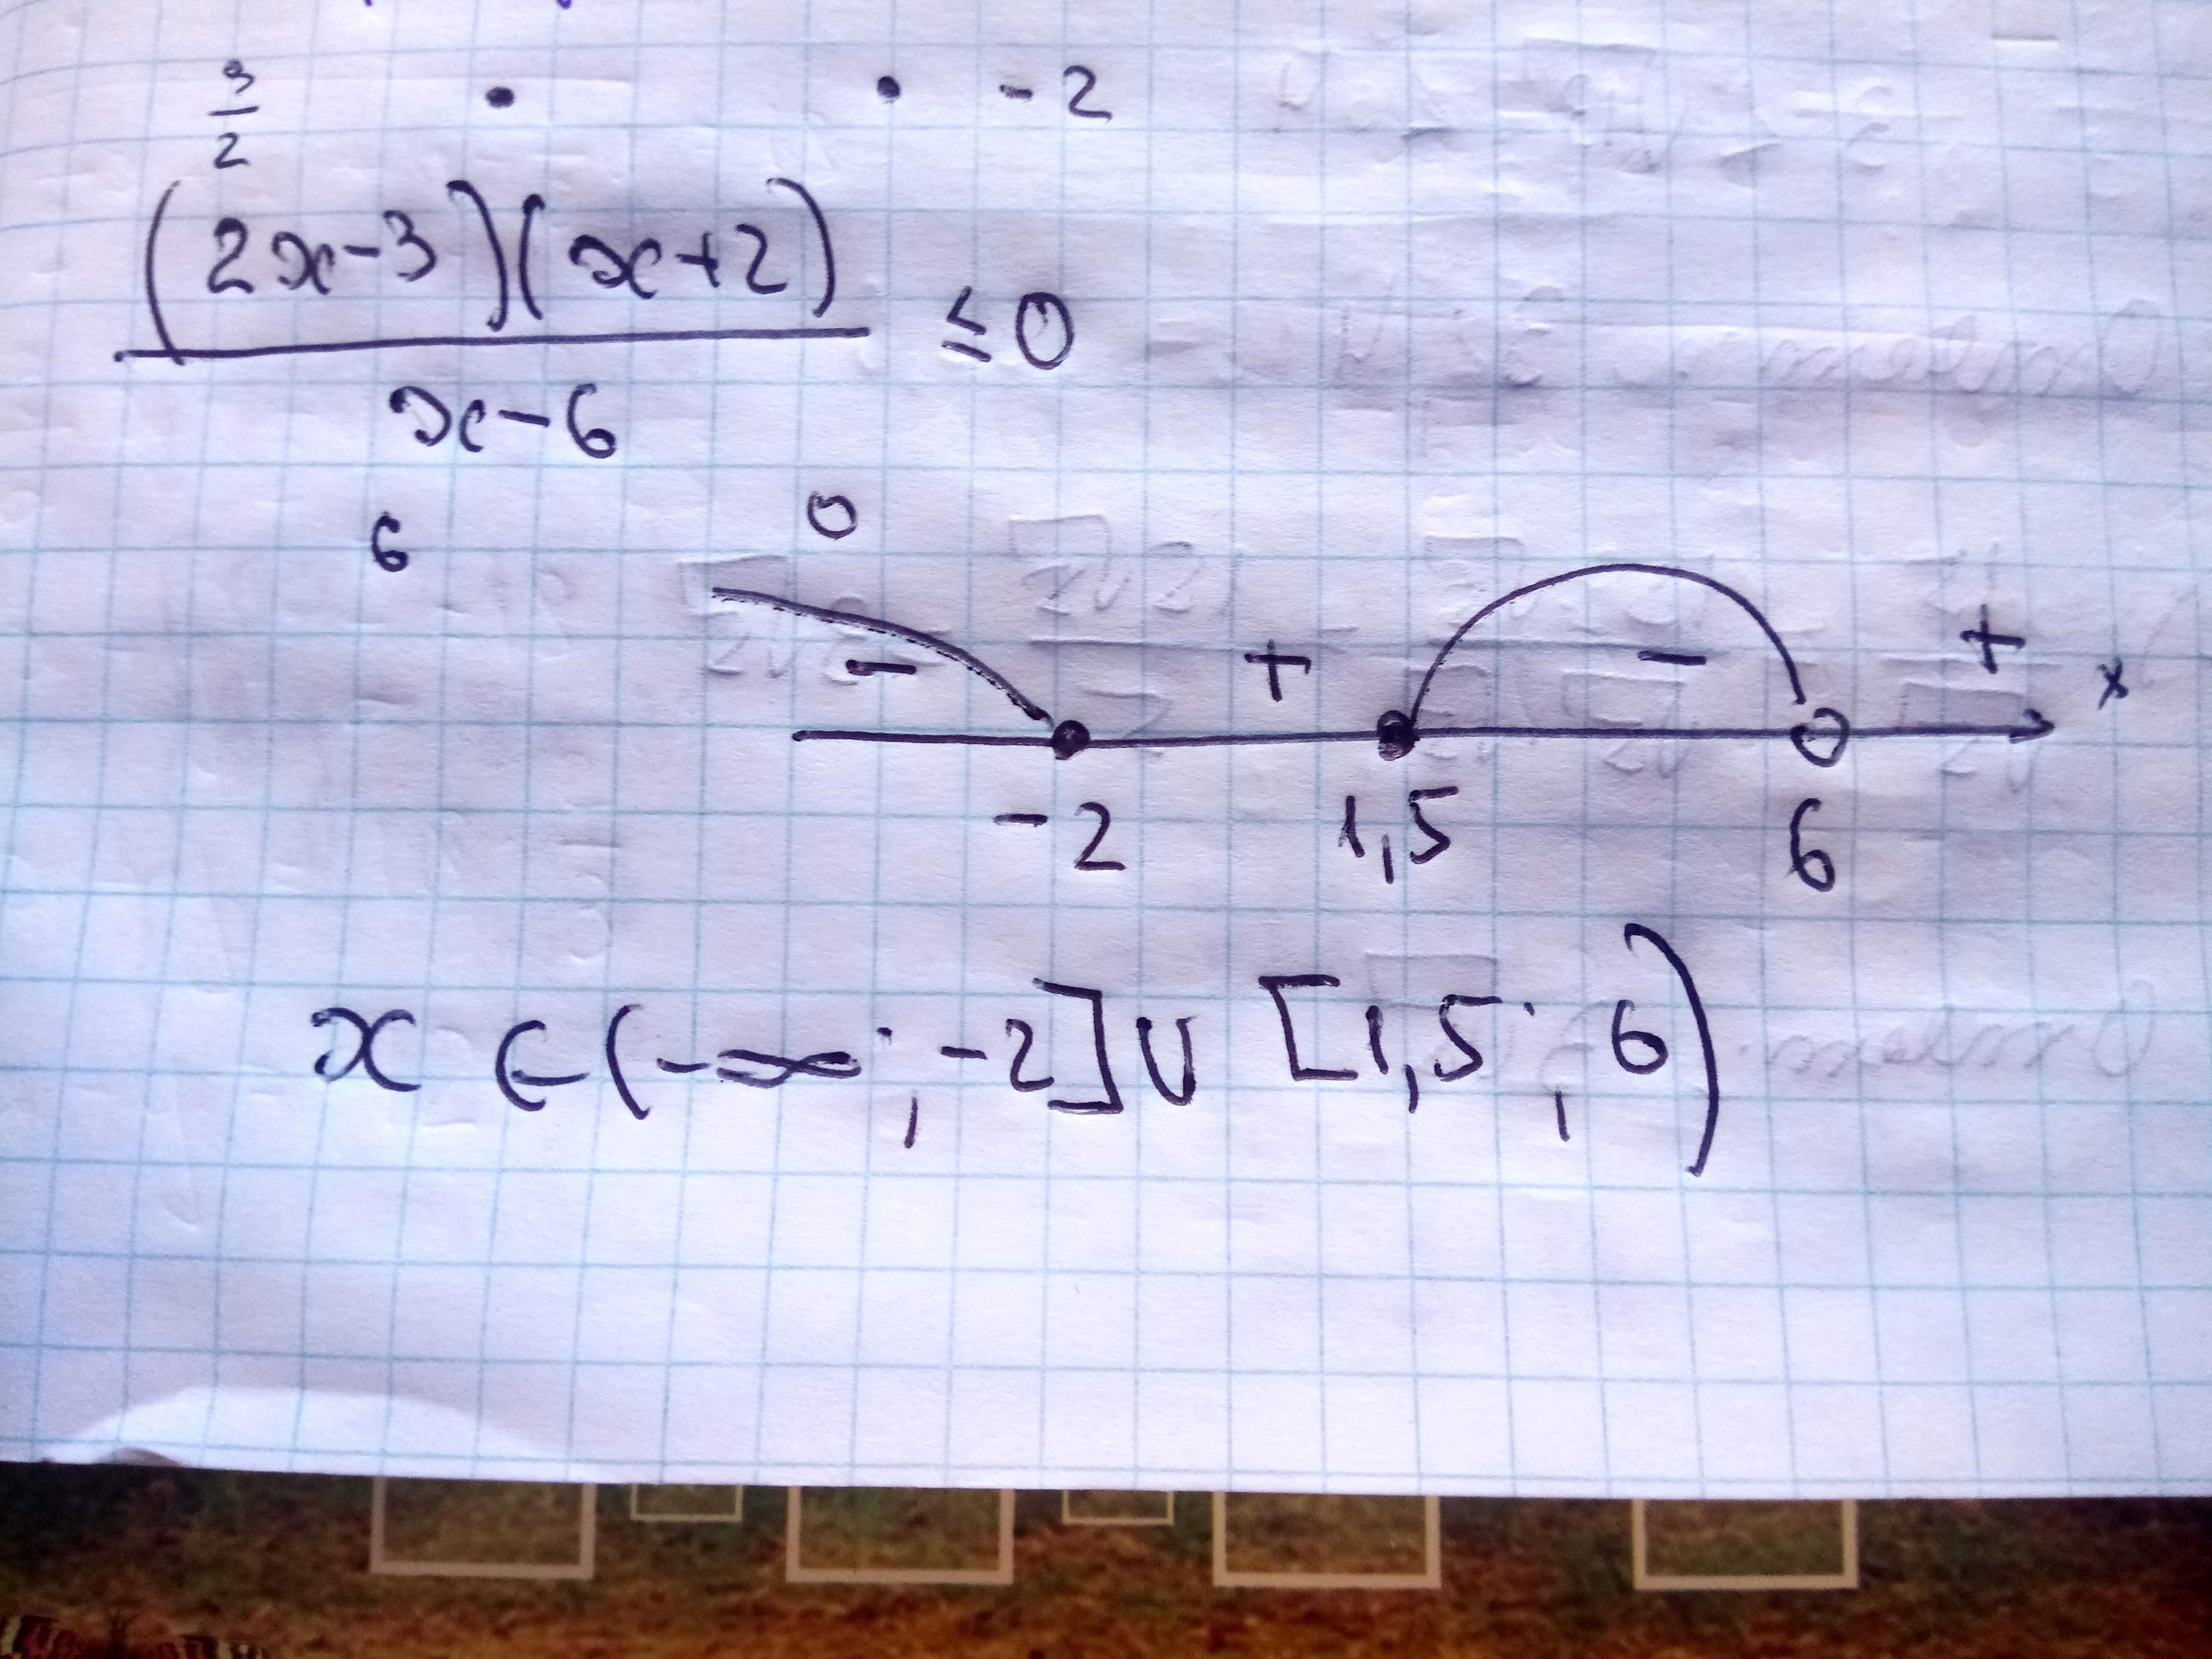 3/2 • • -2
(2x-3)(x+2)
—————— ≤ 0
x-6
6 0
- + - + x
-2 1,5 6
x ∈ (-∞; -2] ∪ [1,5; 6)